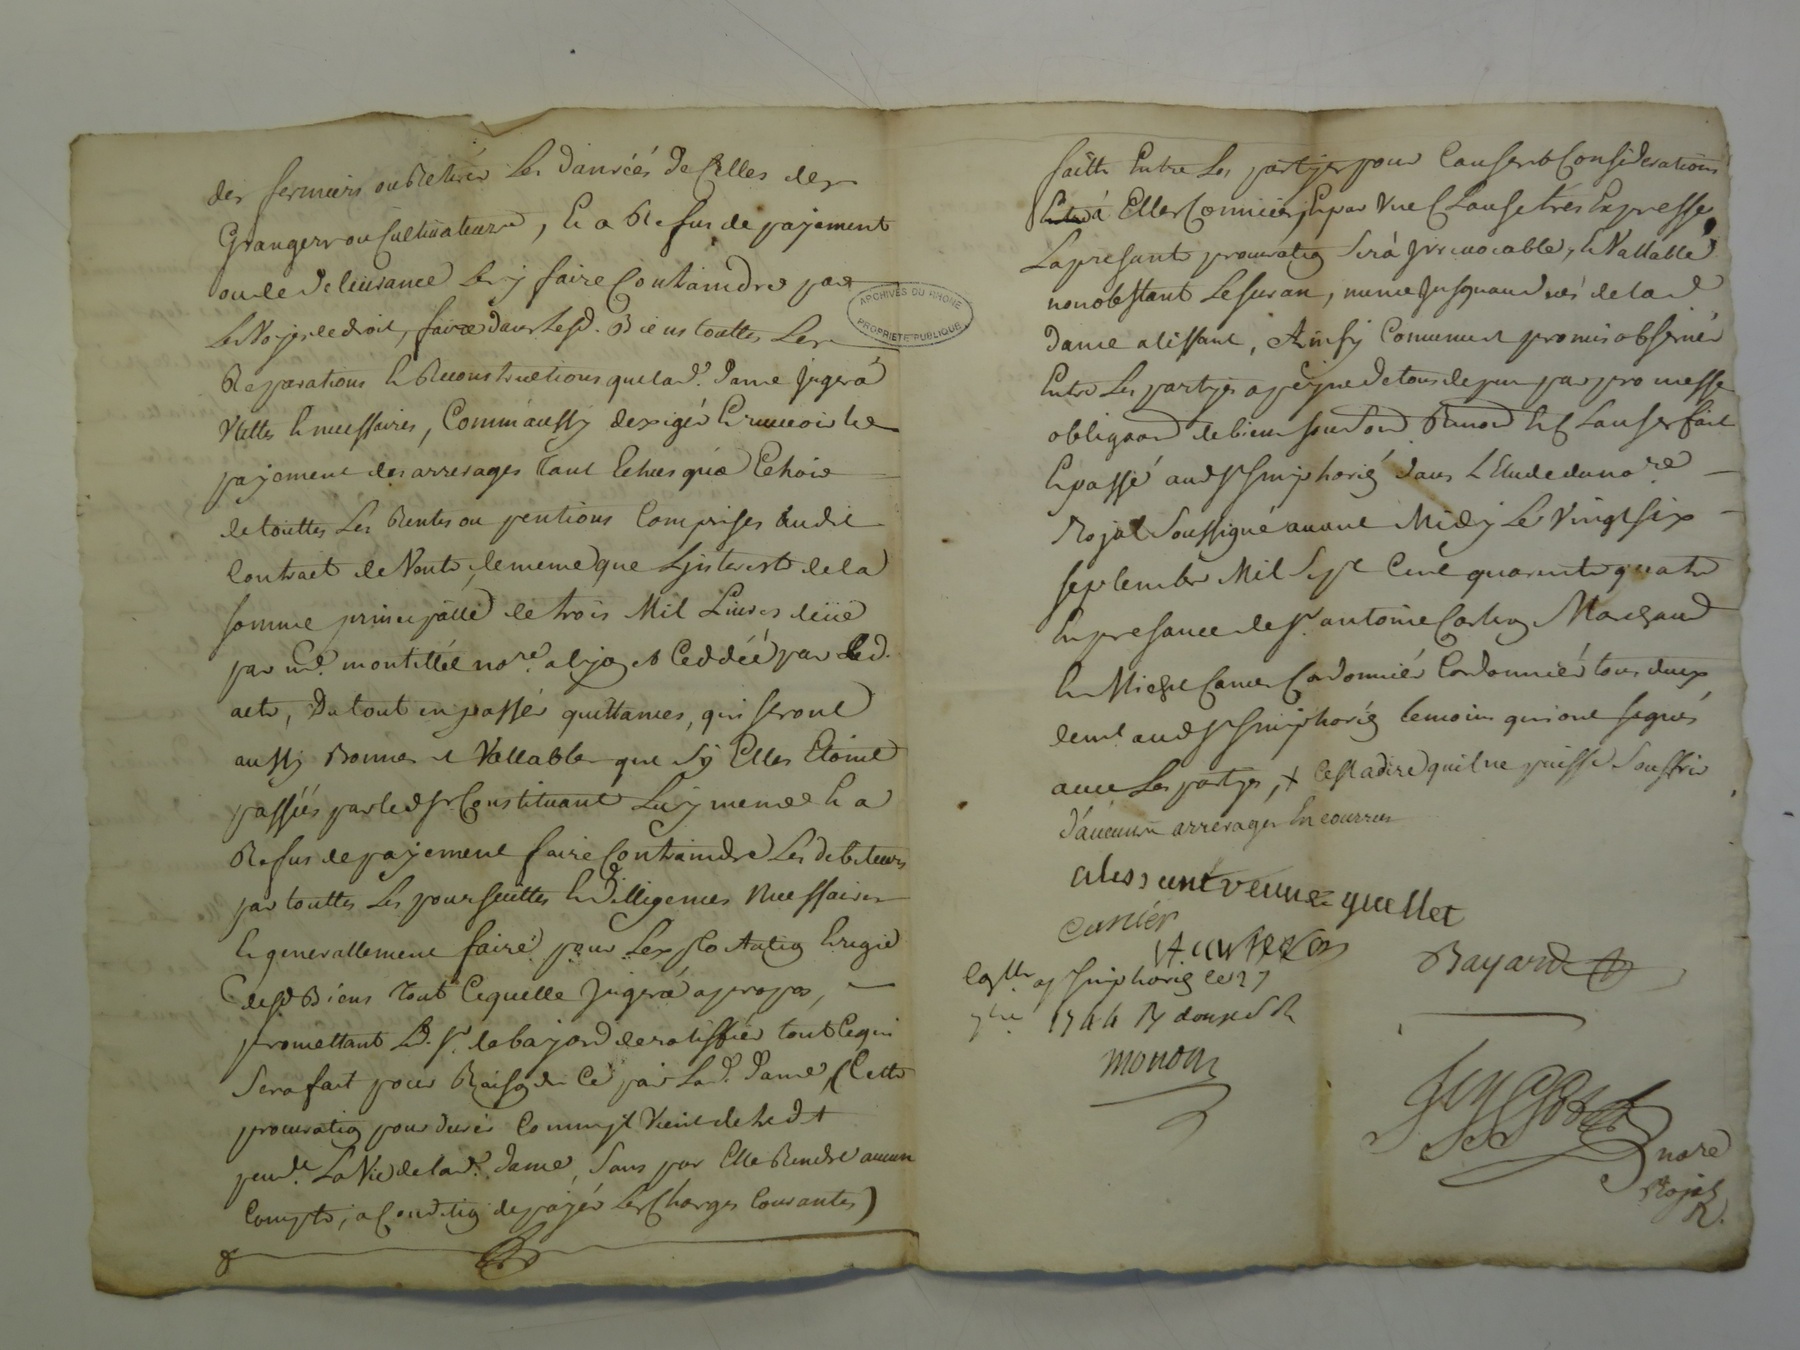 des fermiers ou Retirér Les danréés de Celles des
Grangers ou Cultivateurs, Et a Refus de payement
ou de deliurance Les y faire Contraindre par
Les Voyes de droit, faire dans Lesd. Biens touttes Les
Reparations Et Reconstructions que lad.e dame jugerá
Vtilles Et necessaires, Comm'aussy d'exigér Et recevoir Le
payement des arrerages tant Echus qu'a Echoir
de touttes Les Rentes ou pentions Comprises audit
Contract de Vente, de meme que L'jnterest de la
somme principalle de trois Mil Liures düe
par md. montellié no.re a Et Ceddéé par Led.
acte, Du tout en passér quittances, qui seront
aussy Bonnes et Vallables que sy Elles Etoint
passéés par led. sr Constituant Luy meme Et a
Refus de payement faire Contraindre Les debiteurs
par touttes Les poursuittes Et dilligences Necessaires
Et generallement faire pour L'exploitation Et regie
desd. Biens tout Ce quelle jugera apropos,
promettant Led. Sr. de bayard de ratiffiér tout Ce qui
Sera fait pour Raison de Ce par Lad.e Dame (Cette
procuration pour durér Comm'jl Vient d'Et. dt
pend.t La Vie de lad.e dame, Sans par Elle Rendre aucun
Compte, a Condition de payér Les Charges Courantes)
faitte Entre Les partyes pour Causes et Considerations
a Elles Connües, Et par Vne Clause tres Expresse,
La presante procuration Será jrreuocable, Et Vallable
nonobstant Le suran, meme jusqu'au deces de lad.
dame alissant, Ainsy Conuenu et promis obseruér
Entre Les partyes a peyne de tous depens par promesse
obligaon de biens soum.on Renon Et Clauses fait
Et passé aud. St Simphorien dans L'Etude du no.re
Royal Soussigné auant Midy Le Vingt six
septembre Mil Sept Cent quarente quatre
En presance de Sr. antoine Marchand
Et Michel Cordonniér tous deux
dem.t aud St Simphorien temoins qui ont signés
auec Les partyes, + C'est a dire qu'il ne puisse Souffrir
d'aucuns arrerages En courrus
alessant veuue guellet
Cuniér
Bayard
Con.lle a St Simphorien Le 27
7bre 1744 R/ douze Sols
monon
nore
Royal
R.
ARCHIVES DU RHONE
PROPRIETE PUBLIQUE